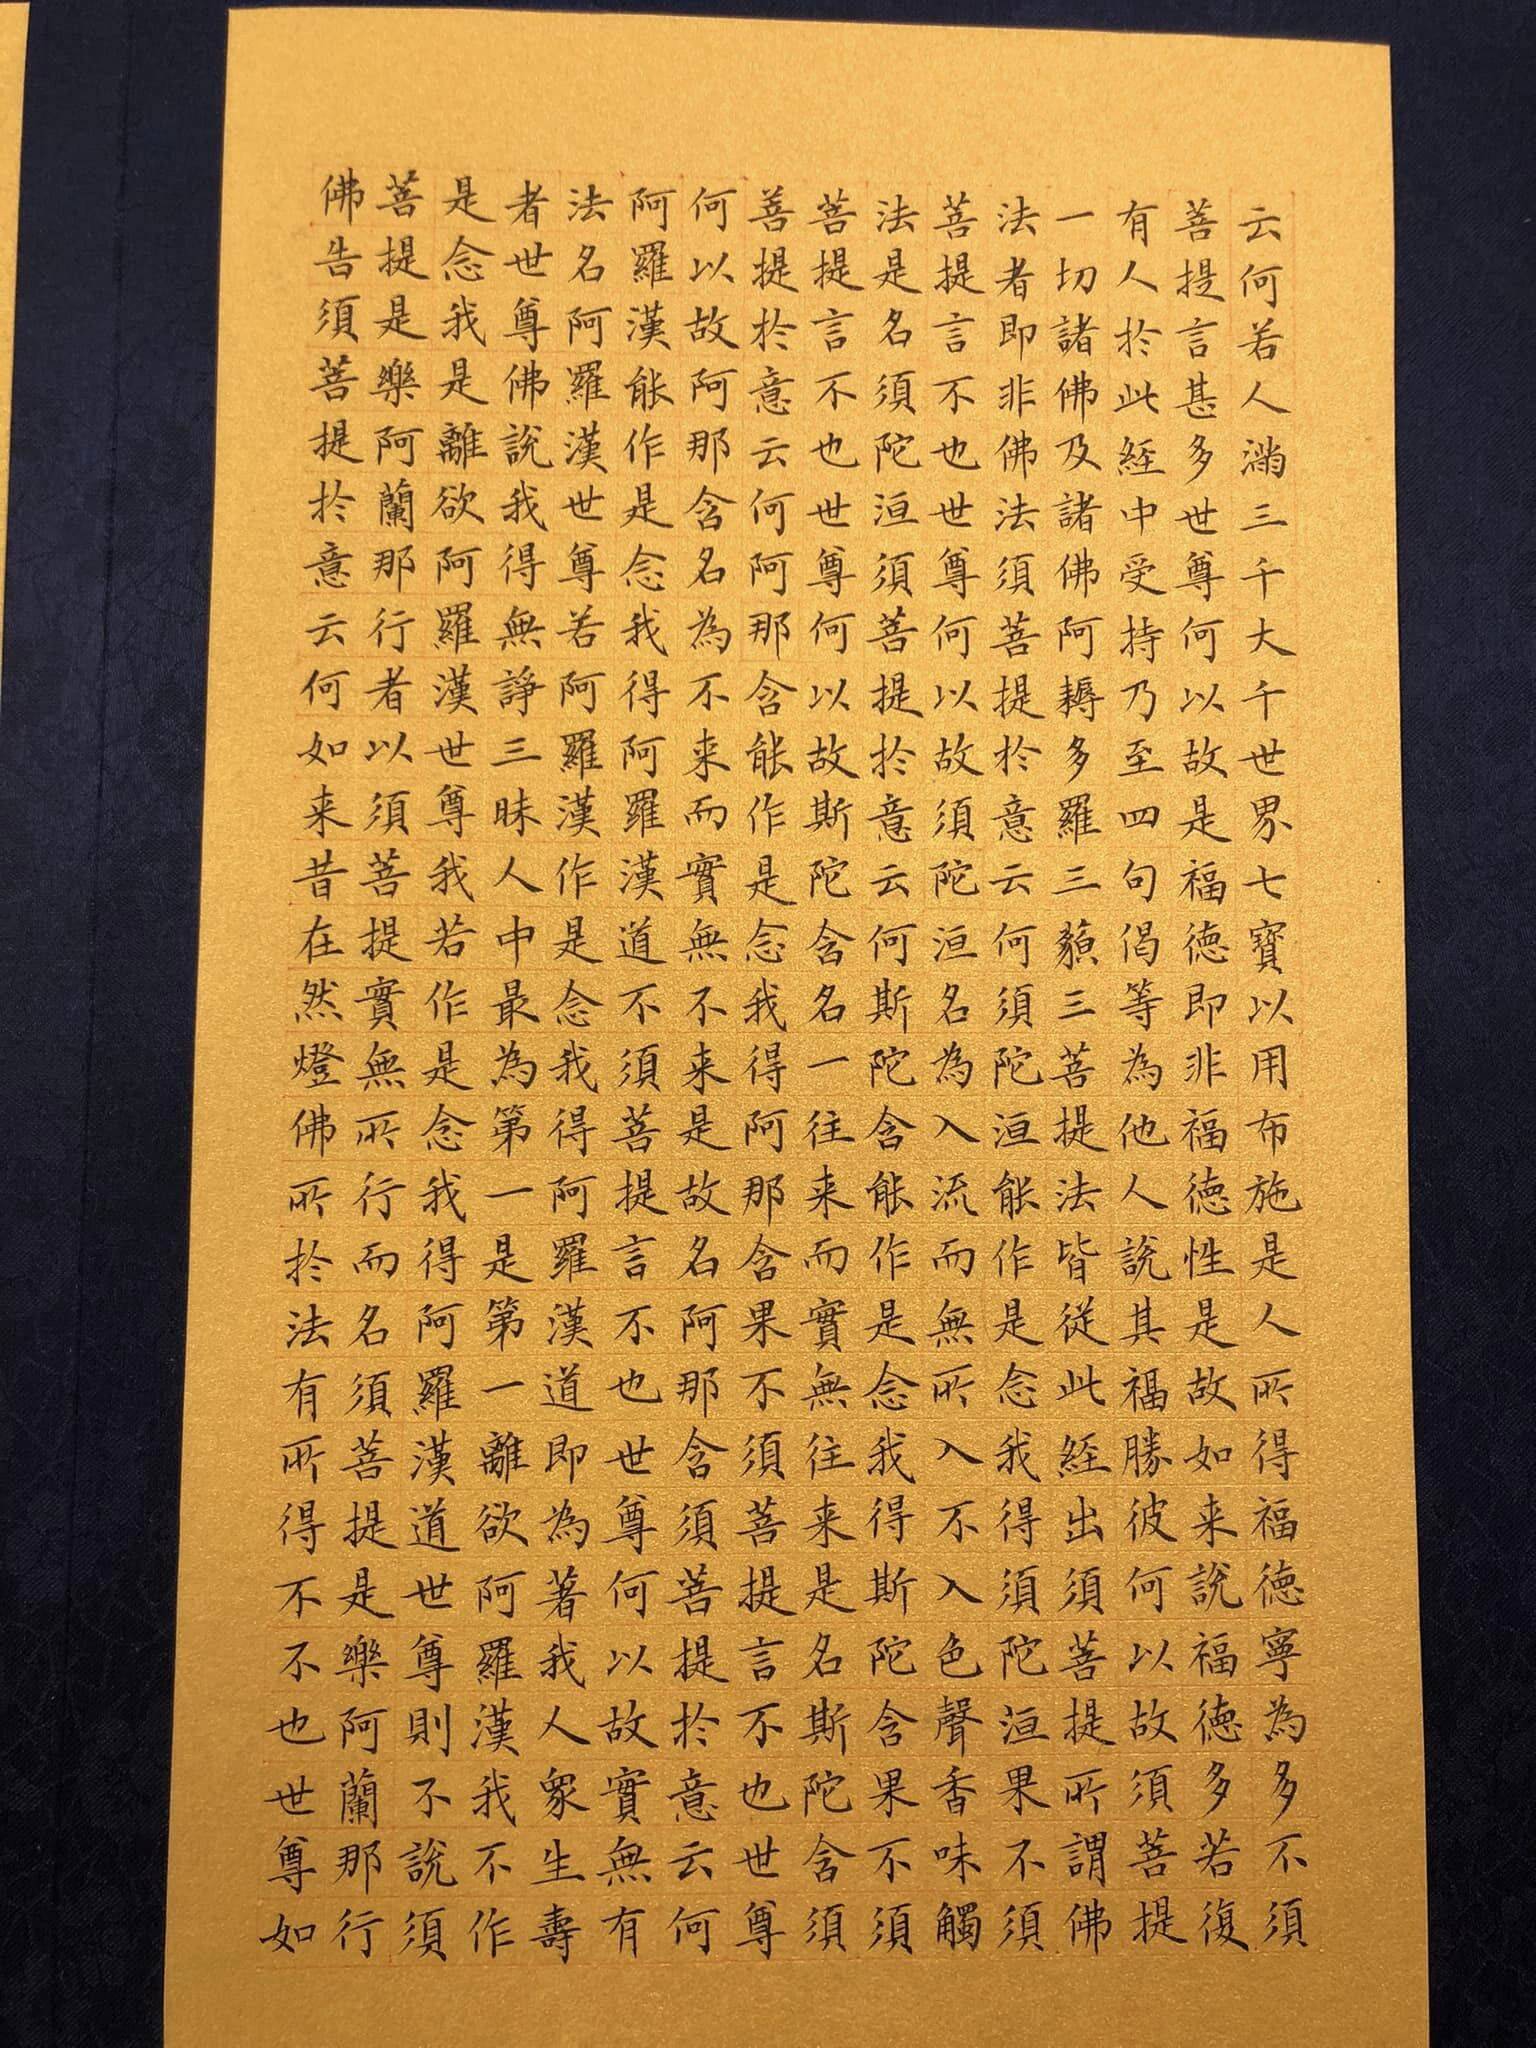 云何若人滿三千大千世界七寶以用布施是人所得福德寧為多不須
菩提言甚多世尊何以故是福德即非福德性是故如来說福德多若復
有人於此經中受持乃至四句偈等為他人說其福勝彼何以故須菩提
一切諸佛及諸佛阿耨多羅三藐三菩提法皆從此經出須菩提所謂佛
法者即非佛法須菩提於意云何須陀洹能作是念我得須陀洹果不須
菩提言不也世尊何以故須陀洹名為入流而無所入不入色聲香味觸
法是名須陀洹須菩提於意云何斯陀含能作是念我得斯陀含果不須
菩提言不也世尊何以故斯陀含名一往来而實無往来是名斯陀含須
菩提於意云何阿那含能作是念我得阿那含果不須菩提言不也世尊
何以故阿那含名為不来而實無不来是故名阿那含須菩提於意云何
阿羅漢能作是念我得阿羅漢道不須菩提言不也世尊何以故實無有
法名阿羅漢世尊若阿羅漢作是念我得阿羅漢道即為著我人眾生壽
者世尊佛說我得無諍三昧人中最為第一是第一離欲阿羅漢我不作
是念我是離欲阿羅漢世尊我若作是念我得阿羅漢道世尊則不說須
菩提是樂阿蘭那行者以須菩提實無所行而名須菩提是樂阿蘭那行
佛告須菩提於意云何如来昔在然燈佛所於法有所得不不也世尊如